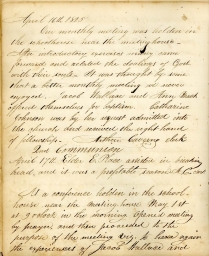 April 16th 1858
Our monthly meeting was holden in
the schoolhouse near the meetinghouse.
After introductory exercises many came
forward and related the dealings of God
with their souls. It was thought by some
that a better monthly meeting we never
enjoyed. Jacob Wallace and Mary
offered themselves for baptism. Catharine
Johnson was by her request admitted into
the church and received the right hand
of fellowship. clerk
Communion
April 17th Elder Place assisted in breaking
bread, and it was a profitable season.
At a conference holden in the school
house near the meeting house May 1st
at 9 o'clock in the morning opened meeting
by prayer and then proceeded to the
purpose of the meeting viz. to hear again
the experiences of Jacob Wallace and